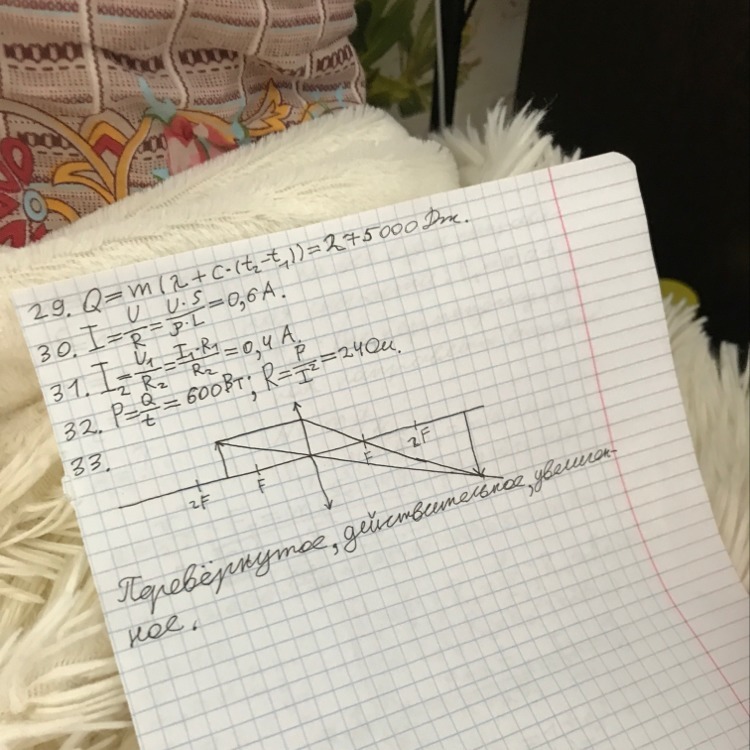 29. Q=m(λ+c·(t₂-t₁))=275000 Дж.
30. I=U/R=U·S/ρ·L=0,6 А.
31. I₂=U₁/R₂=I₁·R₁/R₂=0,4 А.
32. P=Q/t=600Вт; R=P/I²=24Ом.
33.
2F F F 2F
Перевёрнутое, действительное, увеличен-
ное.